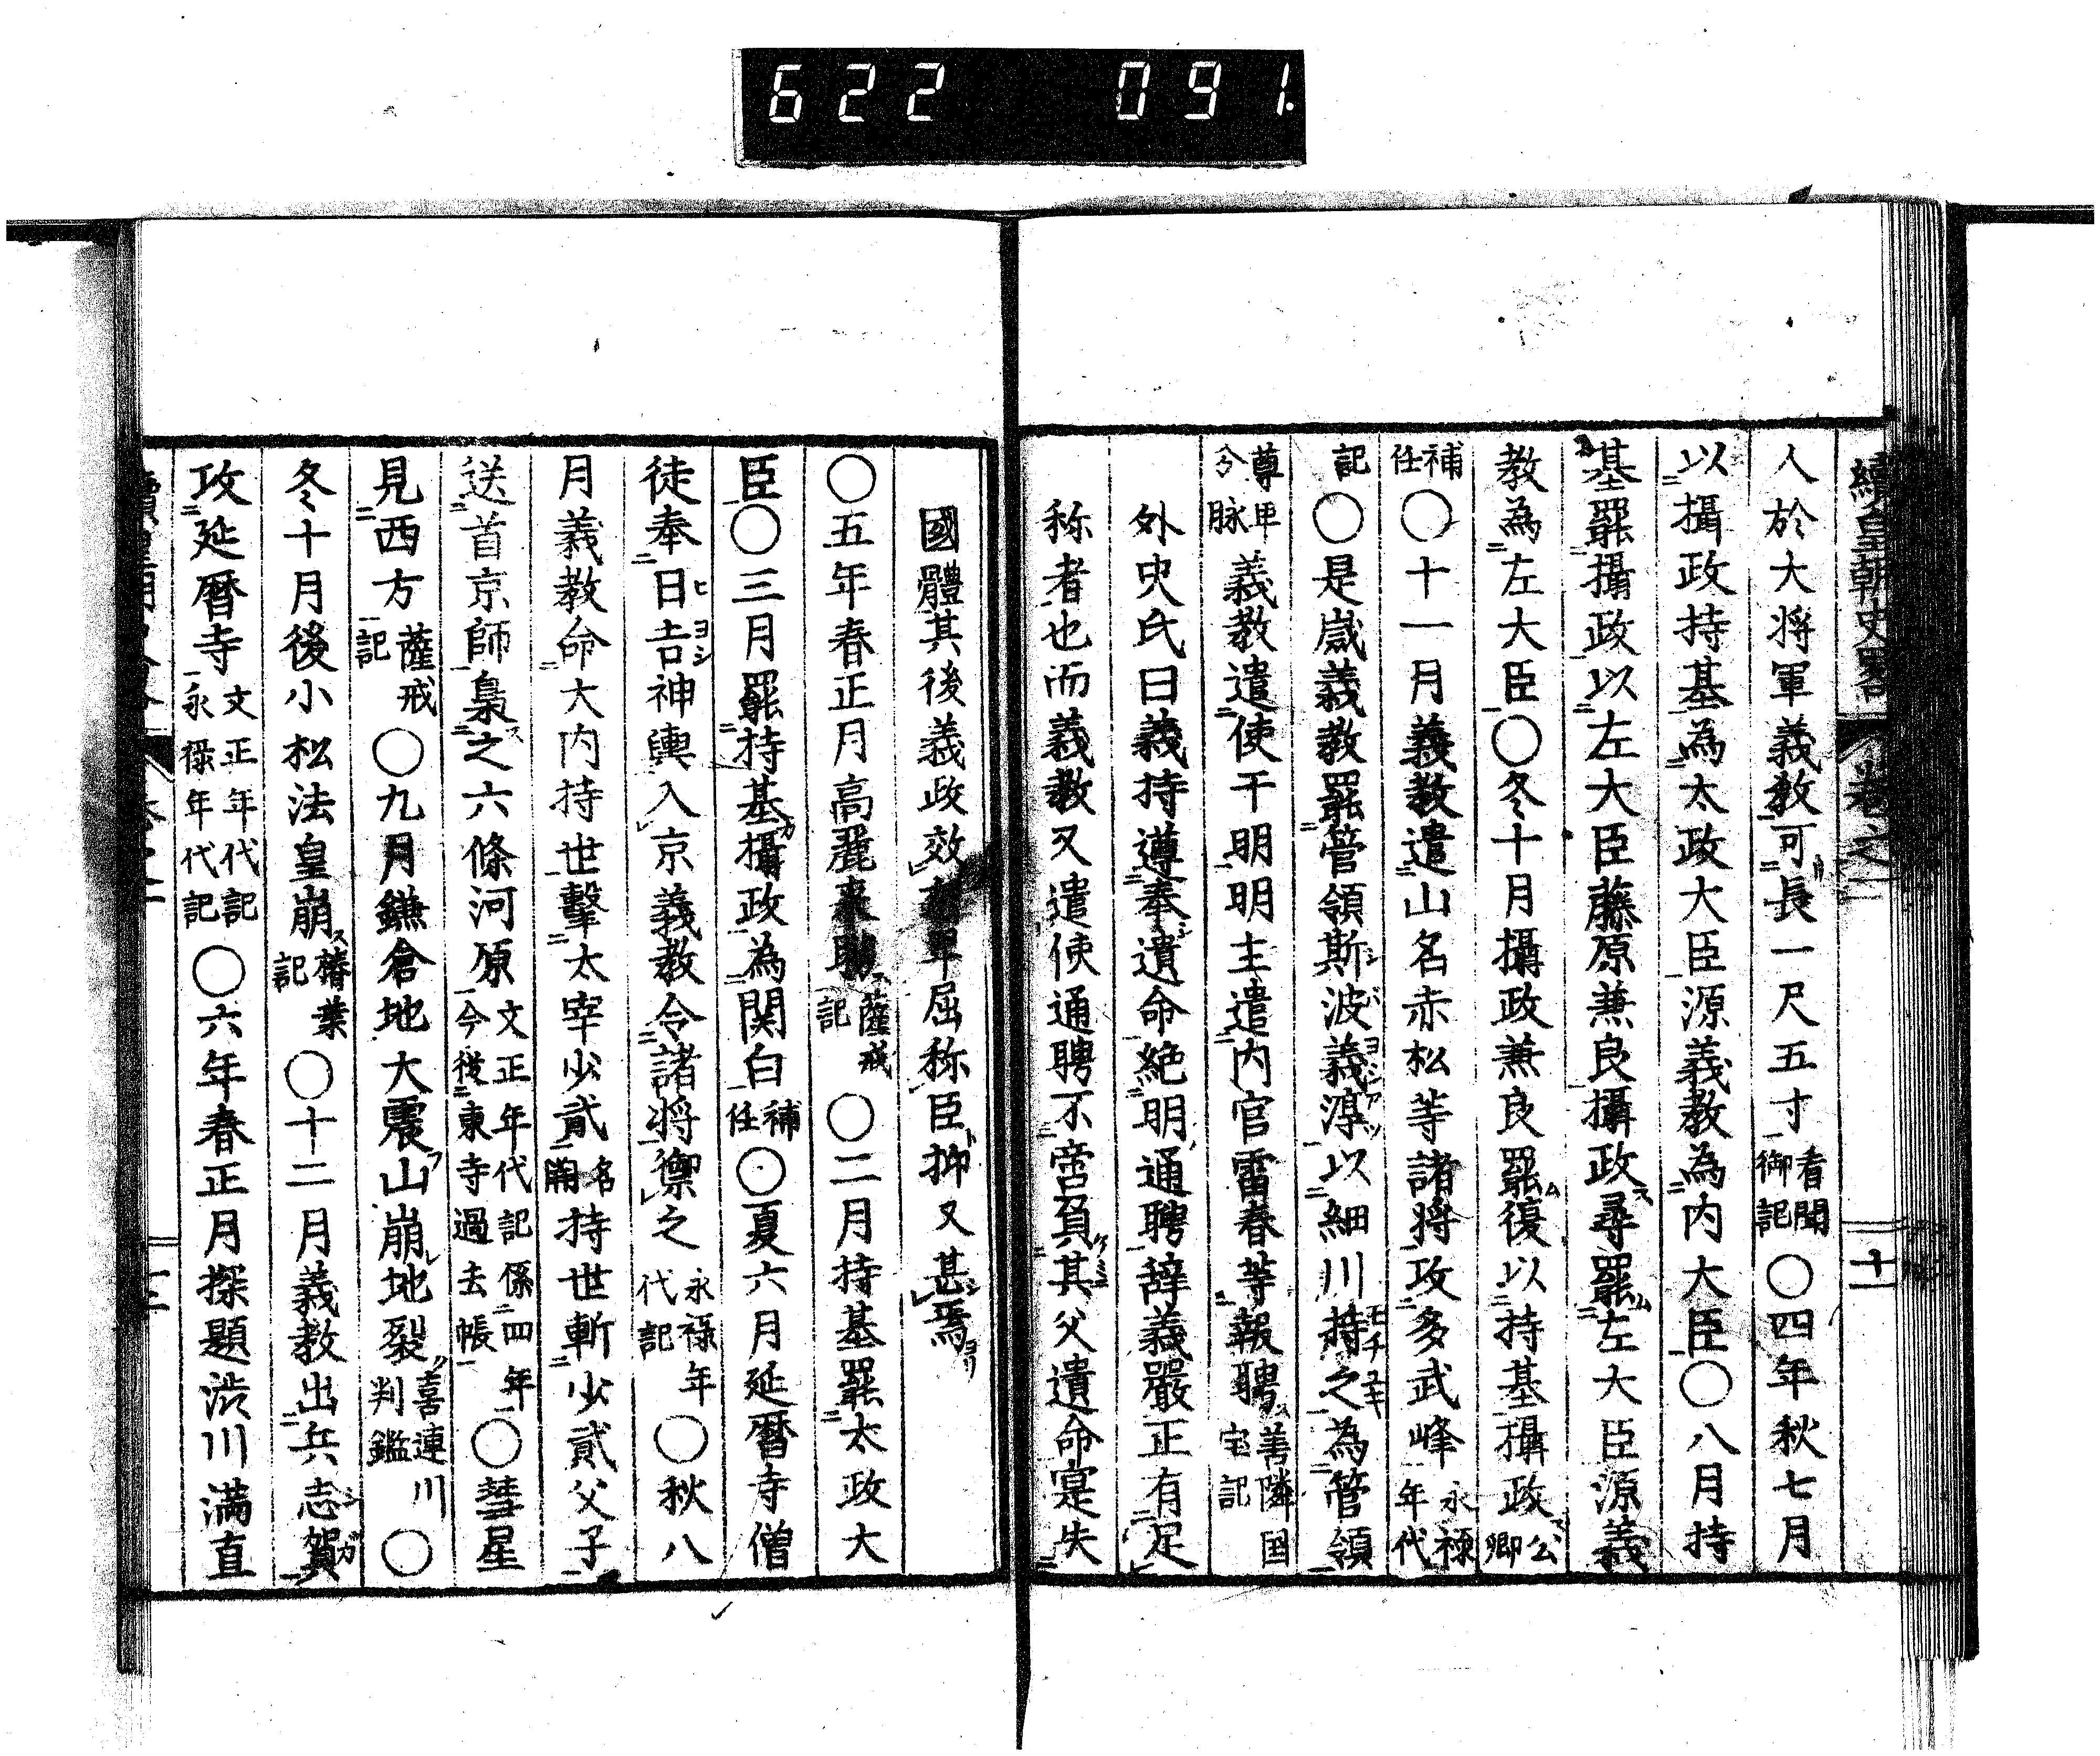 622 091.
續皇朝史畧 卷之一 十一
人於大将軍義教可長一尺五寸 看聞御記 〇四年秋七月
以攝政持基為太政大臣源義教為内大臣〇八月持
基罷攝政以左大臣藤原兼良攝政尋罷左大臣源義
教為左大臣〇冬十月攝政兼良罷復以持基攝政 公卿
補任 〇十一月義教遣山名赤松等諸将攻多武峰 永禄年代
記 〇是歳義教罷管領斯波義淳以細川持之為管領
尊卑分脉 義教遣使于明明主遣内官雷春等報聘 善隣国宝記
外史氏曰義持遵奉遺命絶明通聘辞義嚴正有足
称者也而義教又遣使通聘不啻負其父遺命寔失
國體其後義政效卑屈称臣抑又甚焉
〇五年春正月高麗来聘 薩戒記 〇二月持基罷太政大
臣〇三月罷持基攝政為関白 補任 〇夏六月延暦寺僧
徒奉日吉神輿入京義教令諸将禦之 永禄年代記 〇秋八
月義教命大内持世擊太宰少貳 名闕 持世斬少貳父子
送首京師梟之六條河原 文正年代記係四年今從東寺過去帳 〇彗星
見西方 薩戒記 〇九月鎌倉地大震山崩地裂 喜連川判鑑 〇
冬十月後小松法皇崩 椿葉記 〇十二月義教出兵志賀
攻延暦寺 文正年代記永禄年代記 〇六年春正月探題渋川満直